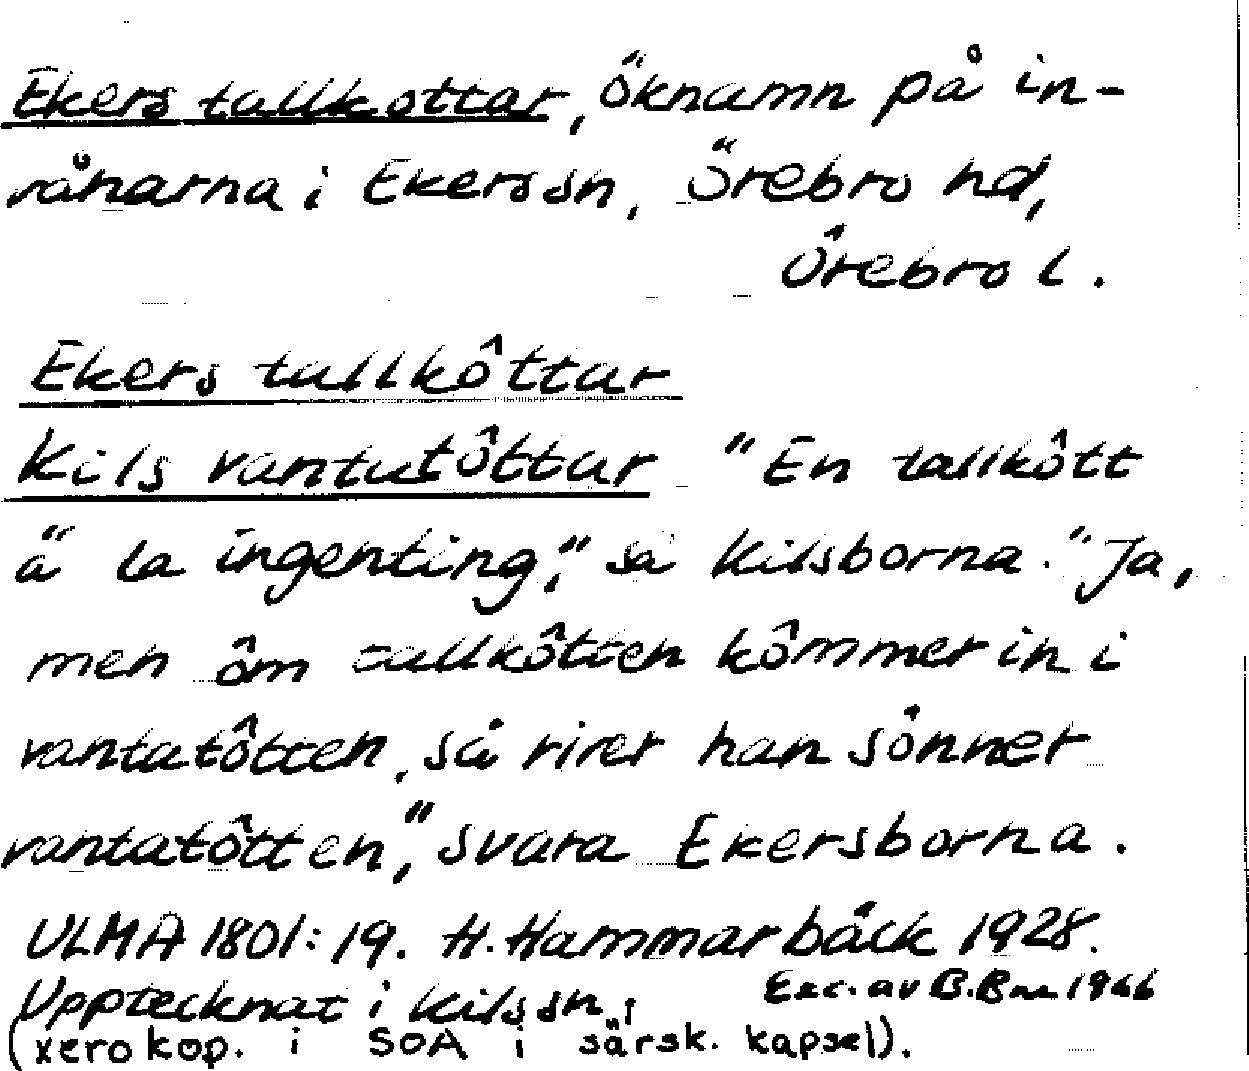 Ekers tallkottar, öknamn på in-
vånarna i Ekers sn, Örebro hd,
Örebro l.
Ekers tallkôttar
Kils vantatôttar "En tallkôtt
ä la ingenting," sa Kilsborna. "Ja,
men ôm tallkôtten kômmer in i
vantatôtten, så river han sônner
vantatôtten," svara Ekersborna.
ULMA 1801:19. H. Hammarbäck 1928.
Upptecknat i Kils sn.
Exc. av B. 1966
(xerokop. i SOA i särsk. kapsel).